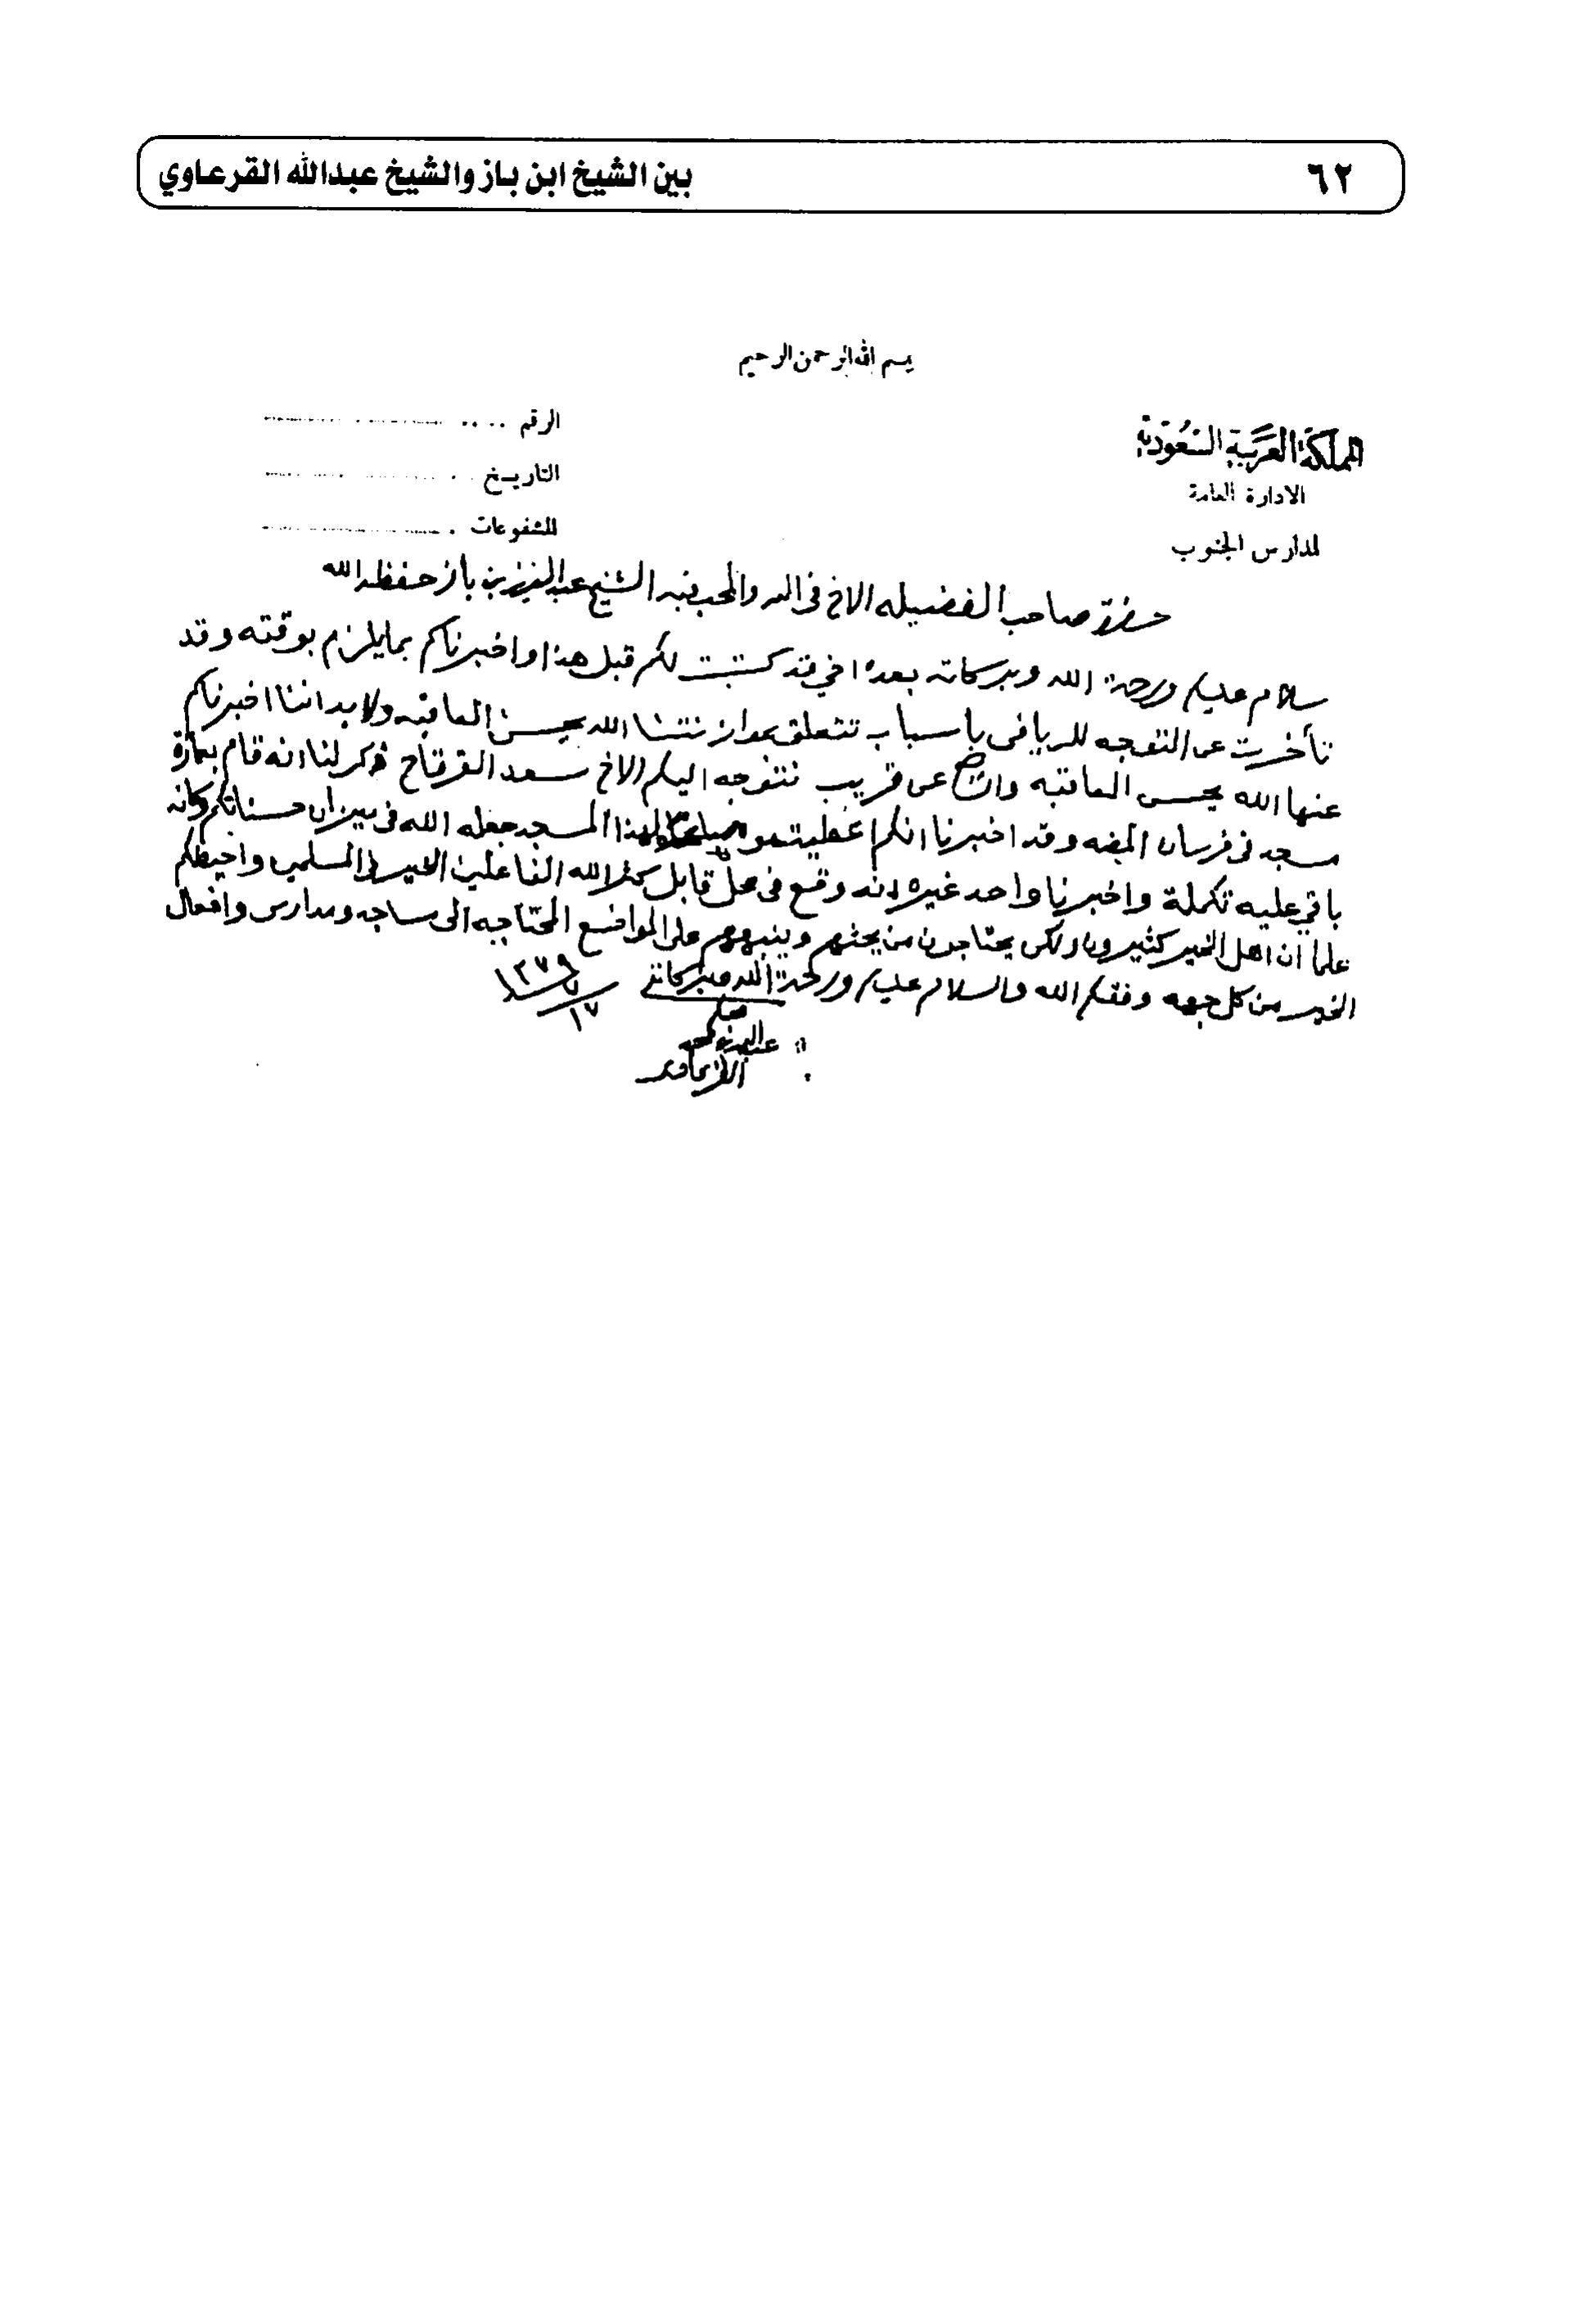 ٦٢
بين الشيخ ابن باز والشيخ عبدالله القرعاوي
بسم الله الرحمن الرحيم
المملكة العربية السعودية
الادارة العامة
لمدارس الجنوب
الرقم
التاريخ
المشفوعات
حضرة صاحب الفضيله الاخ فى الله والمحب فيه الشيخ عبدالعزيز بن باز حفظه الله
سلام عليكم ورحمة الله وبركاته بعده اخي قد كتبت لكم قبل هذا واخبرناكم بما يلزم بوقته وقد
تأخرت عن التوجه للرياض باسباب تتعلق الله بحسن العاقبه ولابد اننا اخبرناكم
عنها الله يحسن العاقبه وان عن قريب نتوجه اليكم الاخ سعد ذكر لنا انه قام بعمارة
مسجد فى فرسان وقد اخبرنا انكم اعطيتموه لهذا المسجد جعله الله فى ميزان حسناتكم وكانه
باقي عليه تكملة واخبرنا واحد غيره انه وقع فى محل قابل كثر الله الفاعلين الخير فى المسلمين واحيطكم
علما ان اهل الخير كثيرون ولكن يحتاجون من يحثهم وينبههم على المواضع المحتاجه الى مساجد ومدارس وافعال
الخير من كل جهه وفقكم الله والسلام عليكم ورحمة الله وبركاته
١٧ / ١٣٧٩
محبكم
القرعاوي